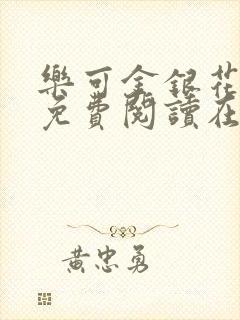 樂可金銀花
免費閱讀在
黃忠勇